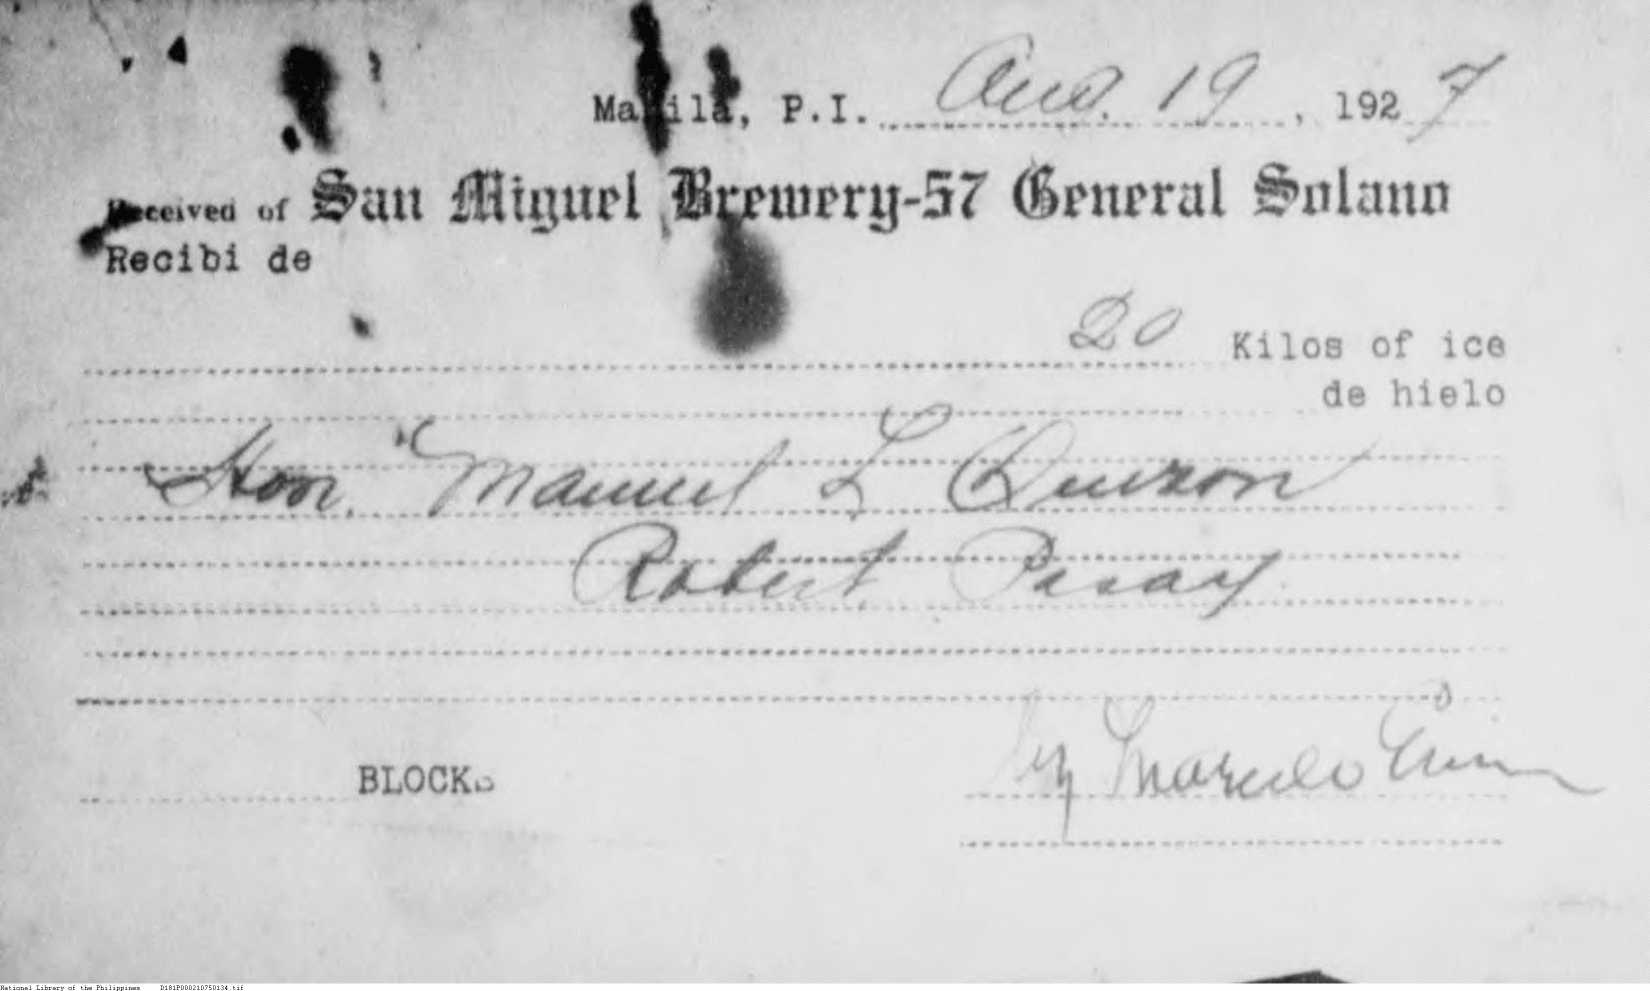 Manila, P.I. Aug. 19, 1927
Received of San Miguel Brewery-57 General Solano
Recibi de
20 Kilos of ice
de hielo
Hon. Manuel L Quezon
Robert Pasay
BLOCKS
by Marcelo
National Library of the Philippines D181P000210750134.tif